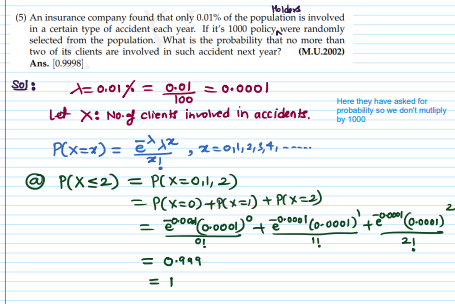 Holders
(5) An insurance company found that only 0.01% of the population is involved
in a certain type of accident each year. If it's 1000 policy were randomly
selected from the population. What is the probability that no more than
two of its clients are involved in such accident next year? (M.U.2002)
Ans. [0.9998]
Sol:
λ = 0.01% = 0.01/100 = 0.0001
Let X: No. of clients involved in accidents.
Here they have asked for
probability so we don't mutliply
by 1000
P(X=x) = e^-λ λ^x / x! , x = 0,1,2,3,4, ------
(a) P(X≤2) = P(X=0,1,2)
= P(X=0) + P(X=1) + P(X=2)
= e^-0.0001 (0.0001)^0 / 0! + e^-0.0001 (0.0001)^1 / 1! + e^-0.0001 (0.0001)^2 / 2!
= 0.999
= 1